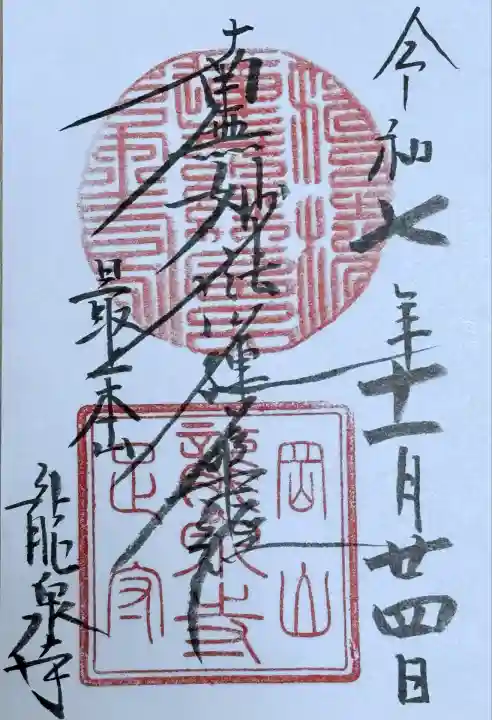 令和七年十一月廿四日
南無妙法蓮華経
最上本山
龍泉寺
岡山
龍泉寺
足守